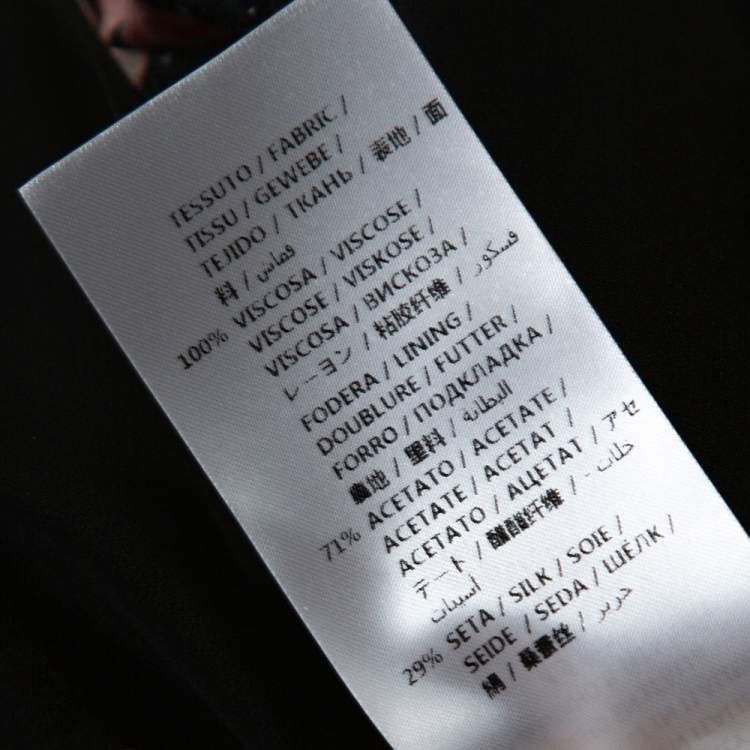 TESSUTO / FABRIC /
TISSU / GEWEBE /
TEJIDO / ТКАНЬ / 表地 / 面
料 / قماش
100% VISCOSA / VISCOSE /
VISCOSE / VISKOSE /
VISCOSA / ВИСКОЗА /
レーヨン / 粘胶纤维 / فسكوز
FODERA / LINING /
DOUBLURE / FUTTER /
FORRO / ПОДКЛАДКА /
裏地 / 里料 / البطانة
71% ACETATO / ACETATE /
ACETATE / ACETAT /
ACETATO / АЦЕТАТ / アセ
テート / 醋酸纤维 / خلات -
أسيتات
29% SETA / SILK / SOIE /
SEIDE / SEDA / ШЁЛК /
絹 / 桑蚕丝 / حرير